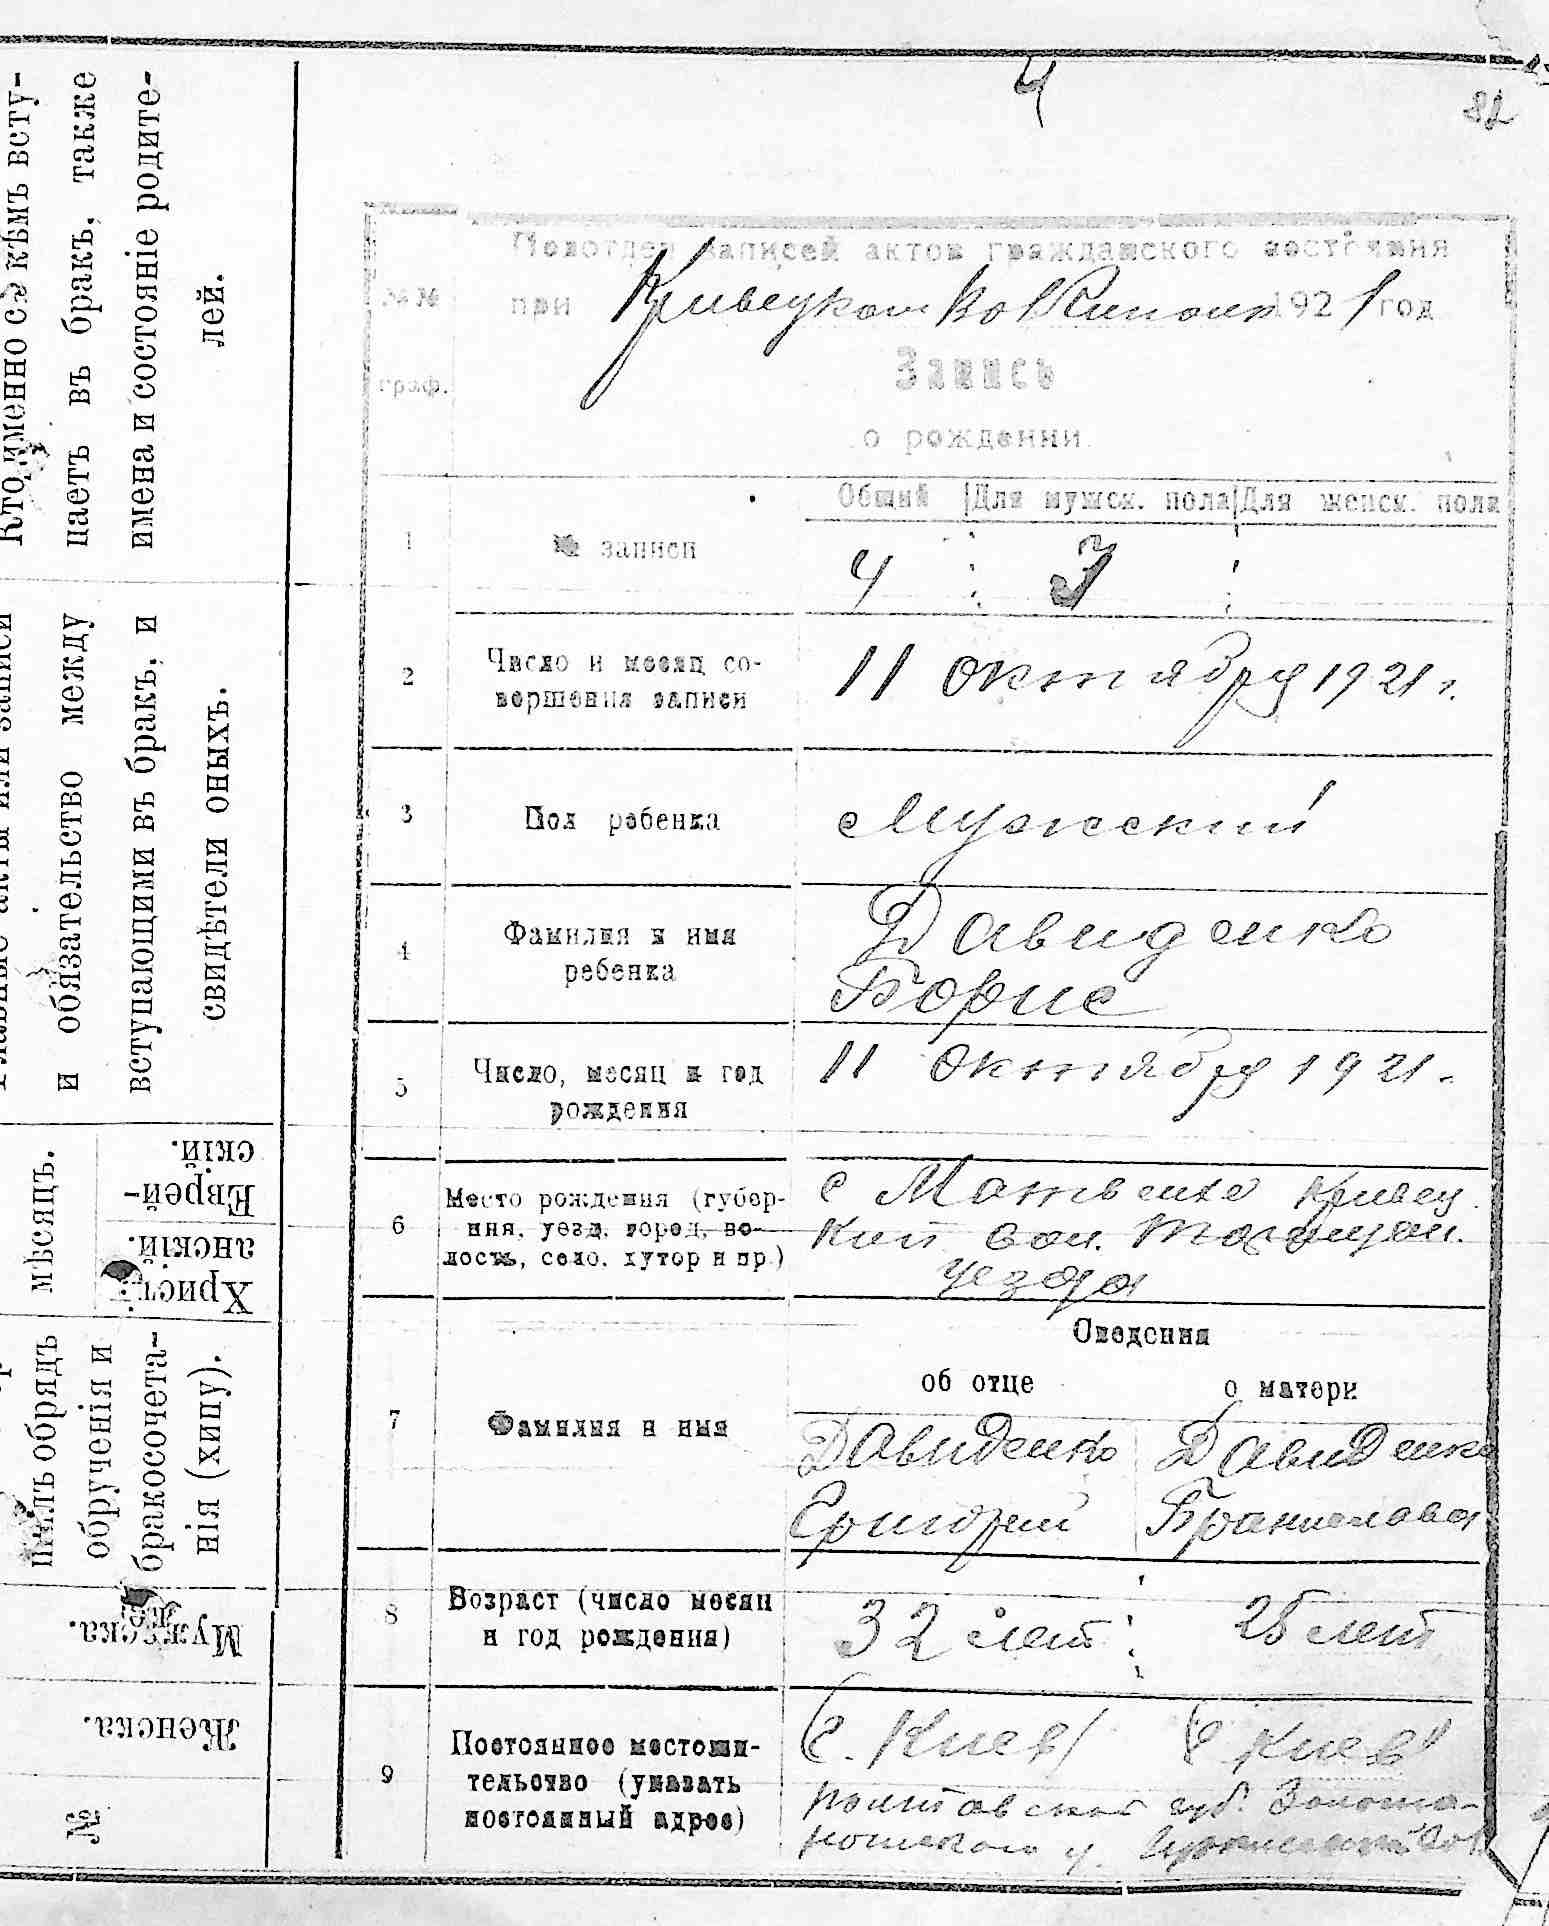 4
82
Кто именно съ кѣмъ всту-
паетъ въ бракъ, также
имена и состояніе родите-
лей.
Главные акты или записи
и обязательство между
вступающими въ бракъ, и
свидѣтели оныхъ.
мѣсяцъ.
Еврей-
скій.
Христі-
анскій.
нилъ обрядъ
обрученія и
бракосочета-
нія (хипу).
Мужеска.
Женска.
№
Подотдел записей актов гражданского состояния
при Кривецком Волисполк 1921 год
№№
граф.
Запись
о рождении
Общий Для мужск. пола Для женск. пола
1 № записи 4 3
2 Число и месяц со-
вершения записи
11 октября 1921 г.
3 Пол ребенка Мужский
4 Фамилия и имя
ребенка
Давиденко
Борис
5 Число, месяц и год
рождения
11 октября 1921.
6 Место рождения (губер-
ния, уезд, город, во-
лость, село, хутор и пр.)
с Матвеиха Кривец
кой вол. Таращан.
уезда
Сведения
об отце о матери
7 Фамилия и имя
Давиденко Давиденко
Григорий Браниславa
8 Возраст (число месяц
и год рождения)
32 лет 25 лет
9 Постоянное местожи-
тельство (указать
постоянный адрес)
(г. Киев) (г Киев)
Полтавской губ. Золото-
ношского у.